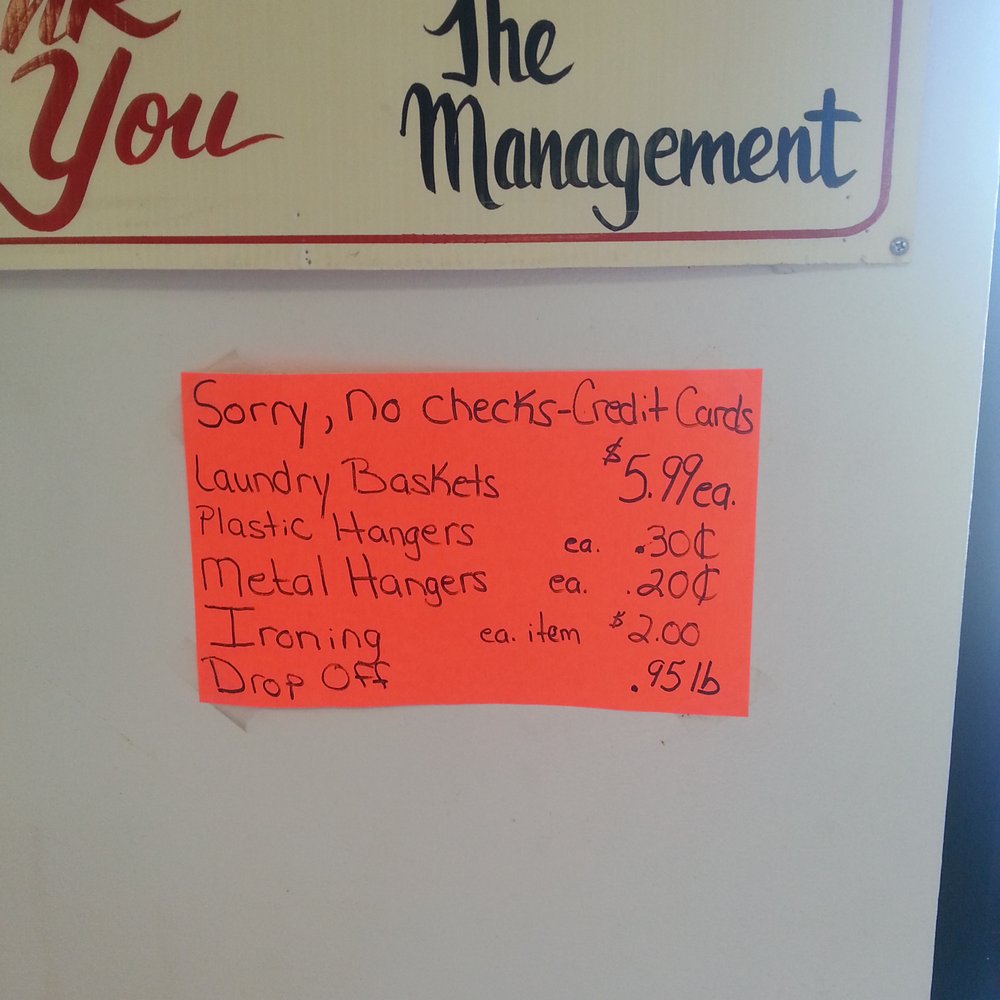 You
The
Management
Sorry, no checks-Credit Cards
Laundry Baskets $5.99ea.
Plastic Hangers ea. .30¢
Metal Hangers ea. .20¢
Ironing ea. item $2.00
Drop Off .95 lb